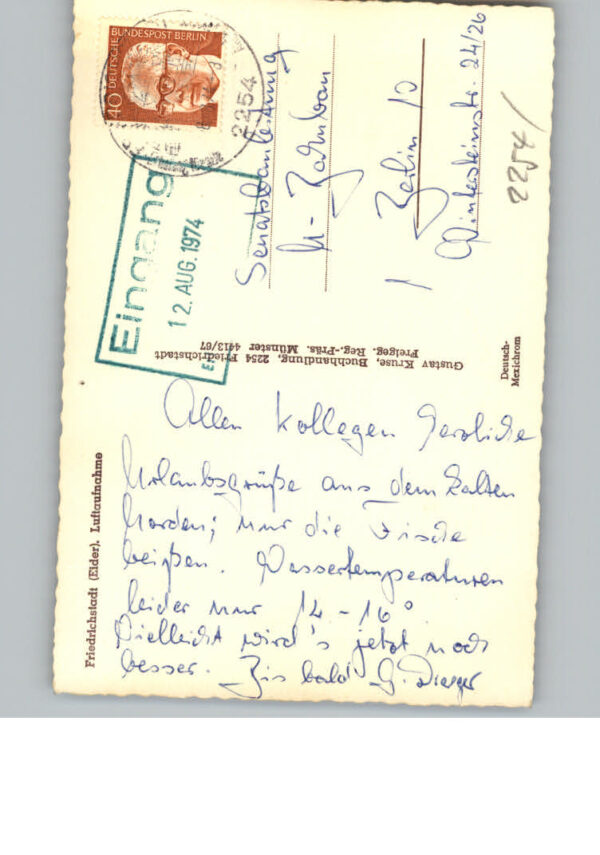 Allen Kollegen herzliche
Urlaubsgrüße aus dem kalten
Norden; nur die Fische
beißen. Wassertemperaturen
leider nur 14 - 16°
Vielleicht wird's jetzt noch
besser. Bis bald G.
Friedrichstadt (Eider), Luftaufnahme
Gustav Kruse, Buchhandlung, 2254 Friedrichstadt
Freigeg. Reg.-Präs. Münster 4413/67
Deutsch-
Mexichrom
DEUTSCHE BUNDESPOST BERLIN
40
2254
Eingang
12. AUG. 1974
Senatsbauleitung
U-Bahnbau
1 Berlin 10
Wintersteinstr. 24/26
2254/